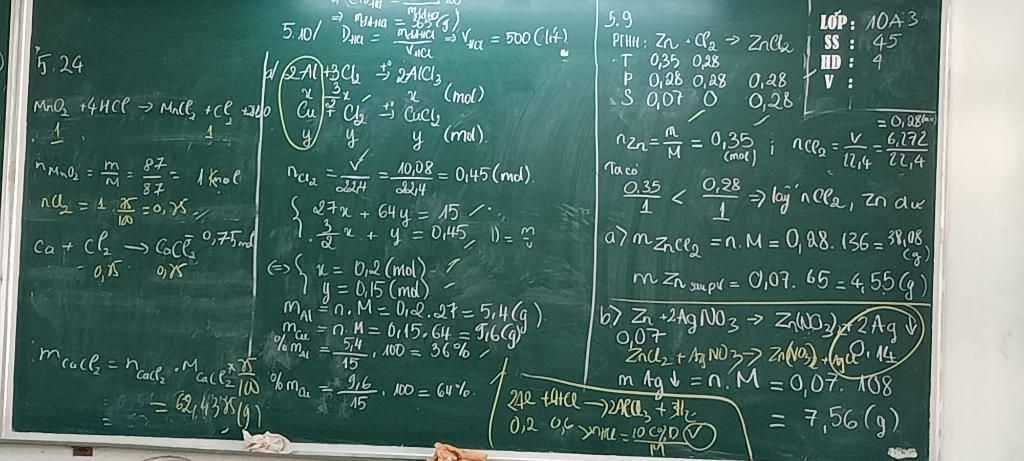 5.24
MnO₂ + 4HCl → MnCl₂ + Cl₂ + 2H₂O
1 1
nMnO₂ = m/M = 87/87 = 1 mol
nCl₂ = 1 . 75/100 = 0,75
Ca + Cl₂ → CaCl₂ 0,75 mol
0,75 0,75
mCaCl₂ = nCaCl₂ . MCaCl₂ × 75/100
= 62,4375 (g)
⇒ mddHCl = 365 (g)
5.10/ DHCl = mddHCl/VHCl ⇒ VHCl = 500 (lít)
a/ 2Al + 3Cl₂ →t° 2AlCl₃
x 3/2 x x (mol)
Cu + Cl₂ →t° CuCl₂
y y y (mol)
nCl₂ = V/22,4 = 10,08/22,4 = 0,45 (mol)
{ 27x + 64y = 15
3/2 x + y = 0,45 D = m/V
⇔ { x = 0,2 (mol)
y = 0,15 (mol)
mAl = n.M = 0,2.27 = 5,4 (g)
mCu = n.M = 0,15.64 = 9,6 (g)
%mAl = 5,4/15 . 100 = 36%
%mCu = 9,6/15 . 100 = 64%
2Al + 6HCl → 2AlCl₃ + 3H₂
0,2 0,6 → nHCl = 10 C% D V/M
5.9
PTHH: Zn + Cl₂ → ZnCl₂
T 0,35 0,28
P 0,28 0,28 0,28
S 0,07 0 0,28
nZn = m/M = 0,35 (mol) ; nCl₂ = V/22,4 = 6,272/22,4 = 0,28 (mol)
Ta có
0,35/1 < 0,28/1 ⇒ lấy nCl₂, Zn dư
a> mZnCl₂ = n.M = 0,28.136 = 38,08 (g)
mZn sau pứ = 0,07.65 = 4,55 (g)
b> Zn + 2AgNO₃ → Zn(NO₃)₂ + 2Ag↓
0,07 0,14
ZnCl₂ + AgNO₃ → Zn(NO₃)₂ + AgCl
mAg↓ = n.M = 0,07.108
= 7,56 (g)
LỚP: 10A3
SS: 45
HD: 4
V: